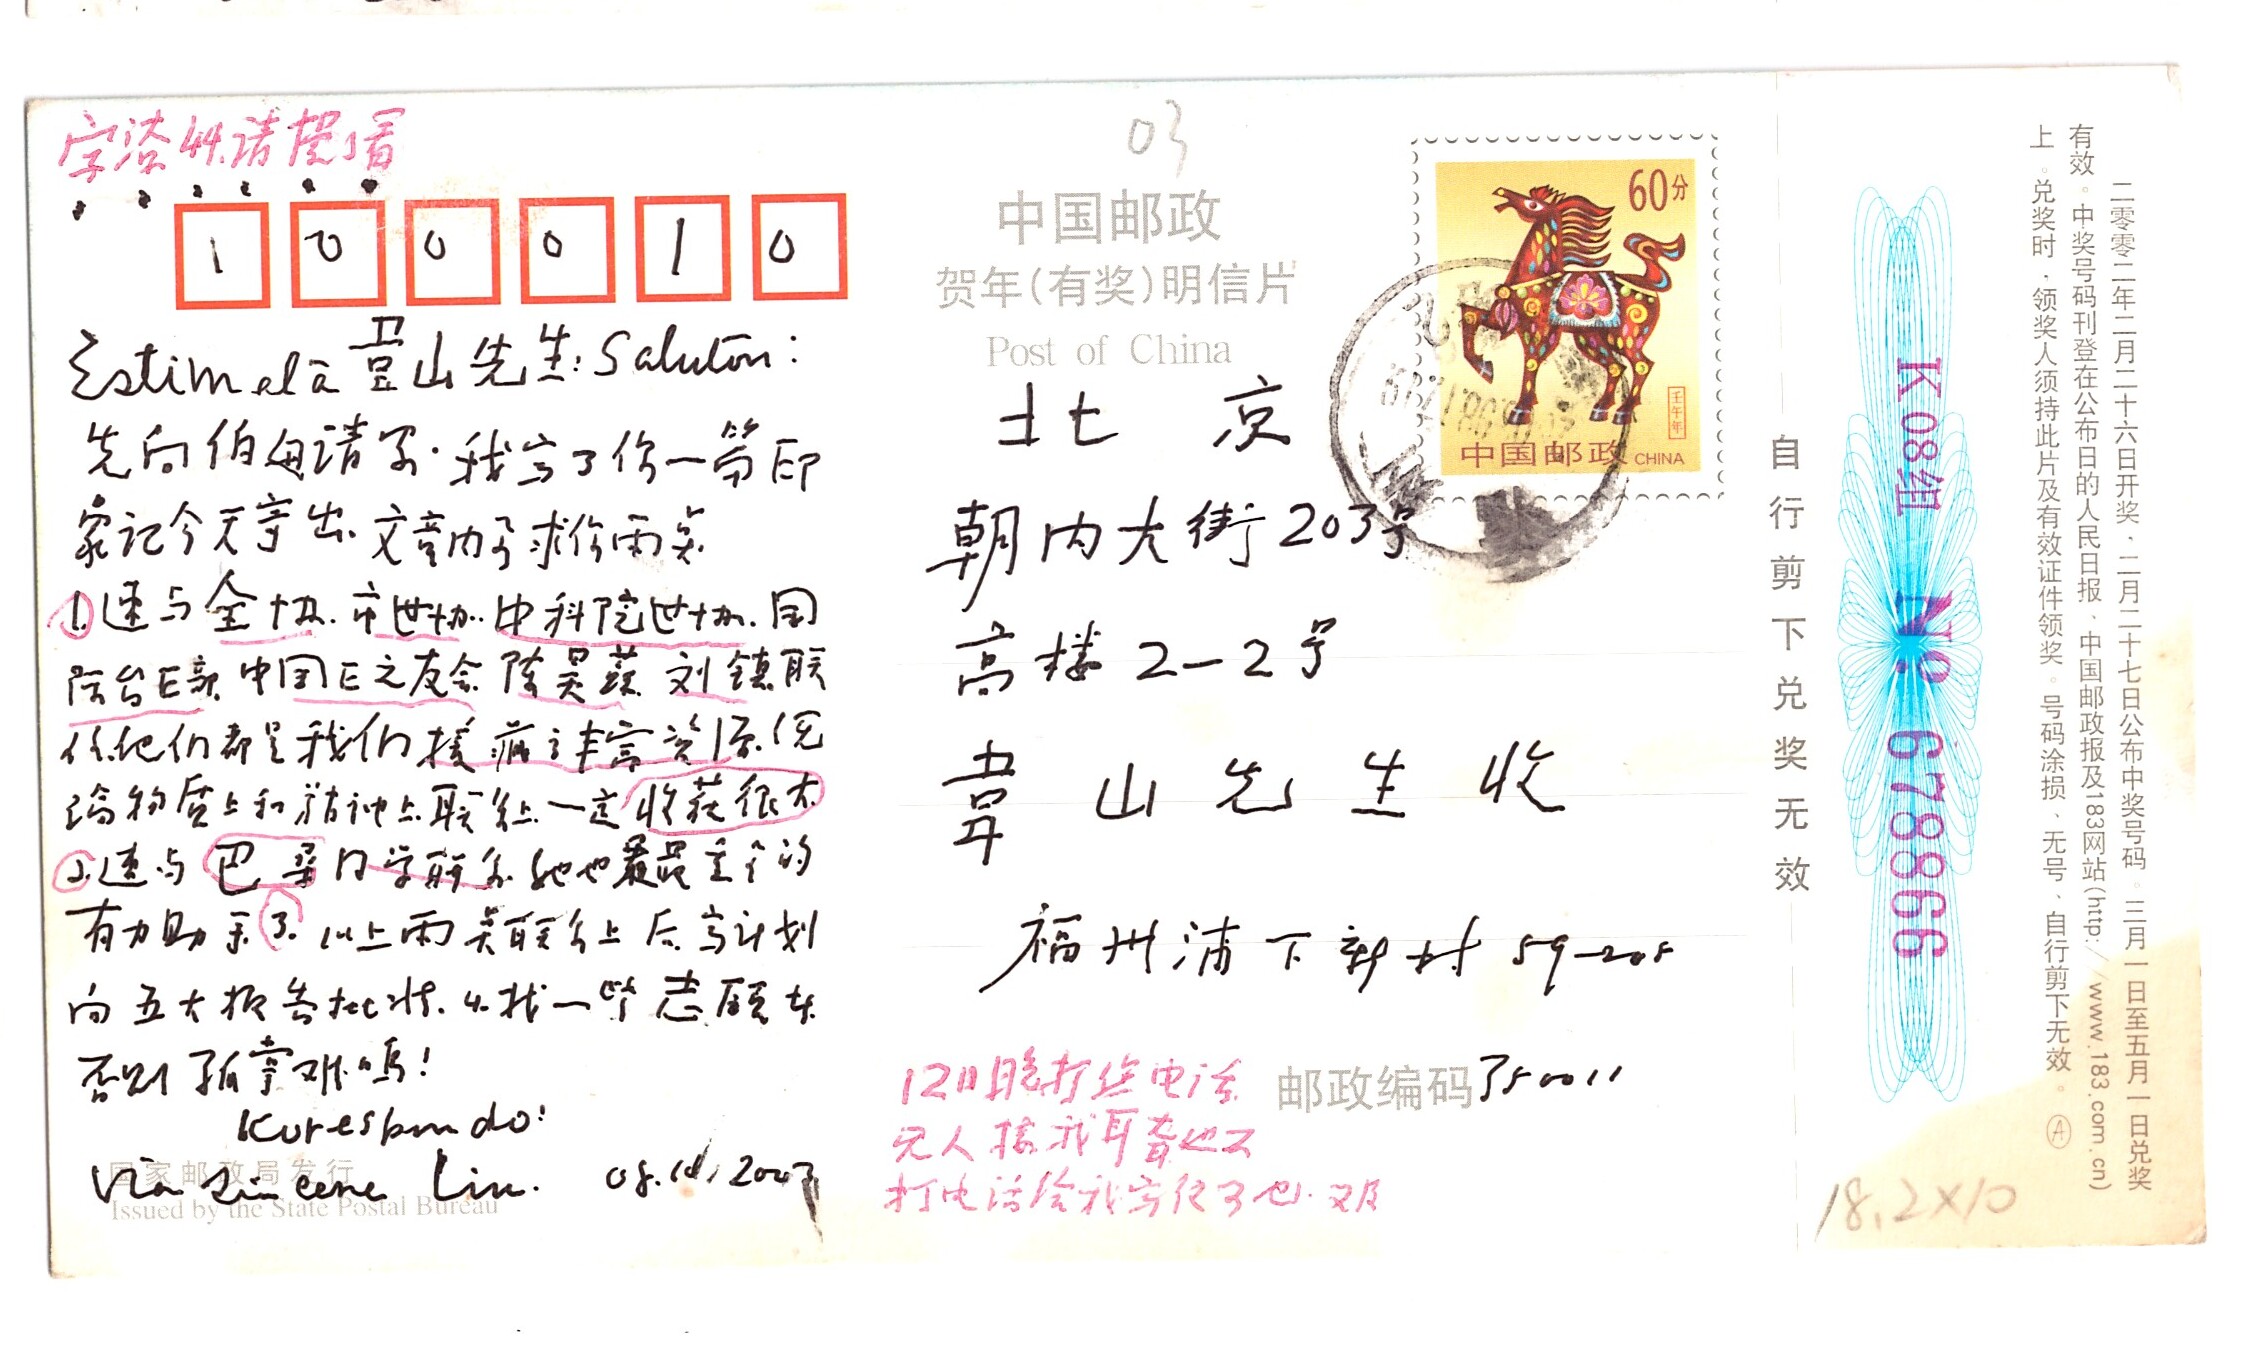 字潦44.请摸着
100010
Estimela 韦山先生: Saluton:
先向伯母请安.我写了你一篇印
象记今天寄出.文章内予求你两点
①速与全协.市世协.中科院世协.国
际台E部 中国E之友会 陈昊 刘镇联
系他们都是我们 丰富资源.无
论物质上和精神上联系上一定收获很大
②速与巴 同学联系 她也最是重个的
有力助手③以上两点联系上后.写计划
向五大报告批准.4.找一些志愿
否则了 难吗!
Korespondo!
Via Lin. 08.10.2003
国家邮政局发行
Issued by the State Postal Bureau
03
中国邮政
贺年(有奖)明信片
Post of China
60分
壬午年
中国邮政 CHINA
北京
朝内大街203号
高楼2-2号
韦山先生收
福州浦下新村59-205
邮政编码350011
12日晚打您电话
无人接我耳聋也不
打电话给我写信了也.又及
自行剪下兑奖无效
K08组 No 678866
二零零二年二月二十六日开奖、二月二十七日公布中奖号码。三月一日至五月一日兑奖
有效。中奖号码刊登在公布日的人民日报、中国邮政报及183网站(http://www.183.com.cn)
上。兑奖时,领奖人须持此片及有效证件领奖。号码涂损、无号、自行剪下无效。 Ⓐ
18.2×10